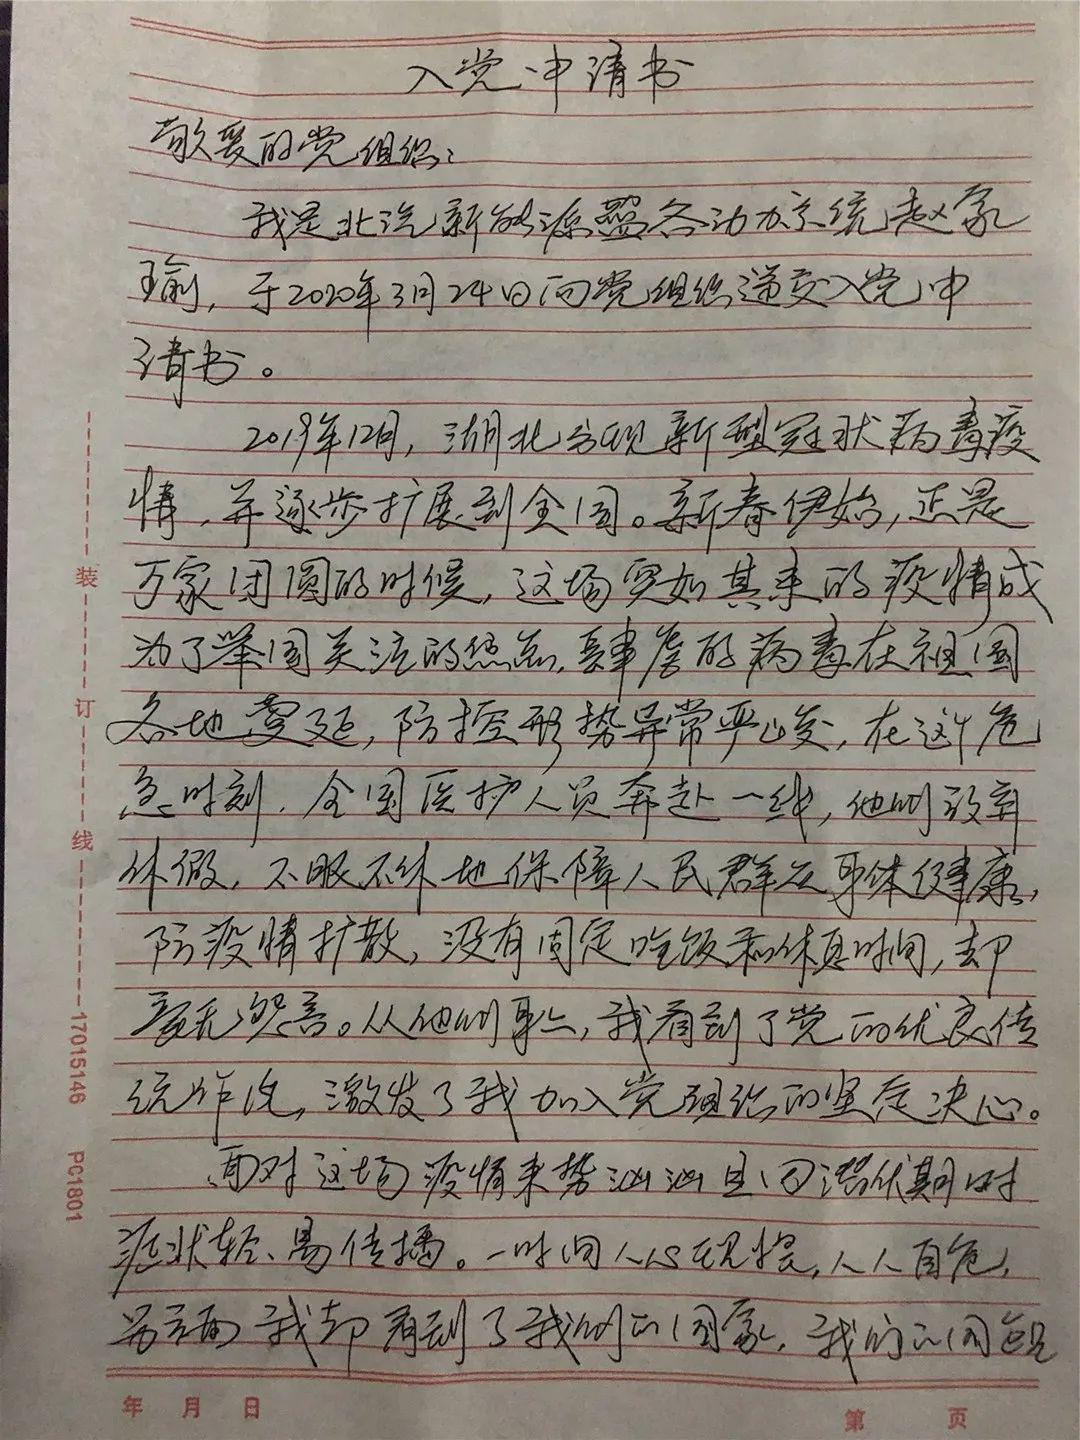 入党申请书
敬爱的党组织：
我是北汽新能源 动力系统赵家
瑜，于2020年3月24日向党组织递交入党申
请书。
2019年12月，湖北出现新型冠状病毒疫
情，并逐步扩展到全国。新春伊始，正是
万家团圆的时候，这场突如其来的疫情成
为了举国关注的焦点，肆虐的病毒在祖国
各地蔓延，防控形势异常严峻，在这个危
急时刻，全国医护人员奔赴一线，他们放弃
休假，不眠不休地保障人民群众身体健康，
防疫情扩散，没有固定吃饭和休息时间，却
毫无怨言。从他们身上，我看到了党的优良传
统作风，激发了我加入党组织的坚定决心。
面对这场疫情来势汹汹且因潜伏期时
症状轻、易传播。一时间人心 ，人人自危，
另方面 我却看到了我们的国家，我们的
装
订
线
17015146 PC1801
年 月 日
第 页